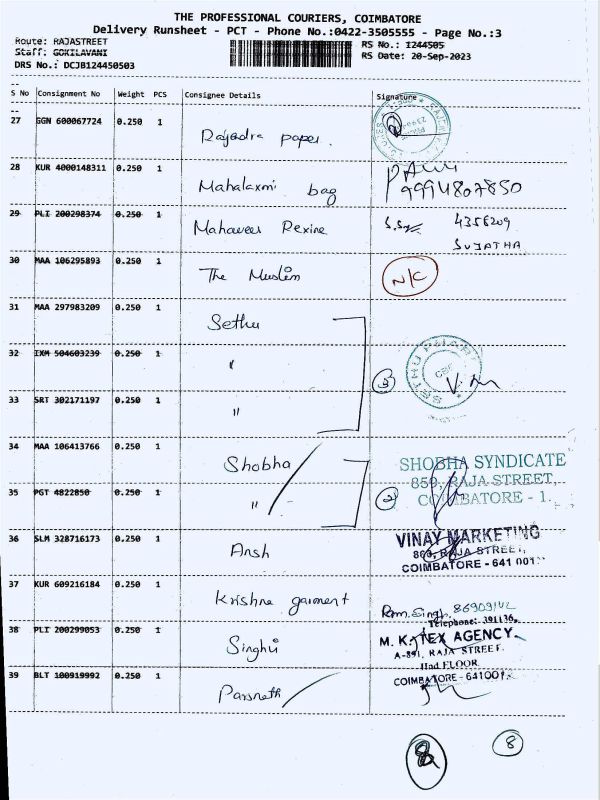 THE PROFESSIONAL COURIERS, COIMBATORE
Delivery Runsheet - PCT - Phone No.:0422-3505555 - Page No.:3
Route: RAJASTREET
Staff: GOKILAVANI
DRS No.: DCJB124450503
RS No.: 1244505
RS Date: 20-Sep-2023
S No Consignment No Weight PCS Consignee Details Signature
27 GGN 600067724 0.250 1 Rajendra paper.
28 KUR 4000148311 0.250 1 Mahalaxmi bag
9994807850
29 PLI 200298374 0.250 1 Mahaveer Rexine 4356209
SUJATHA
30 MAA 106295893 0.250 1 The Muslim N/C
31 MAA 297983209 0.250 1 Sethu
32 IXM 504603239 0.250 1 "
3
33 SRT 302171197 0.250 1 "
34 MAA 106413766 0.250 1 Shobha
SHOBHA SYNDICATE
859, RAJA STREET,
COIMBATORE - 1.
35 PGT 4822850 0.250 1 "
2
36 SLM 328716173 0.250 1 Ansh
VINAY MARKETING
RAJA STREET,
COIMBATORE - 641 001
37 KUR 609216184 0.250 1 Krishna garment
Ram. Singh
Telephone: 391136
38 PLI 200299053 0.250 1 Singhvi
M. K. TEX AGENCY.
A-891, RAJA STREET
IInd FLOOR
COIMBATORE - 641001.
39 BLT 100919992 0.250 1 Parsneth
8